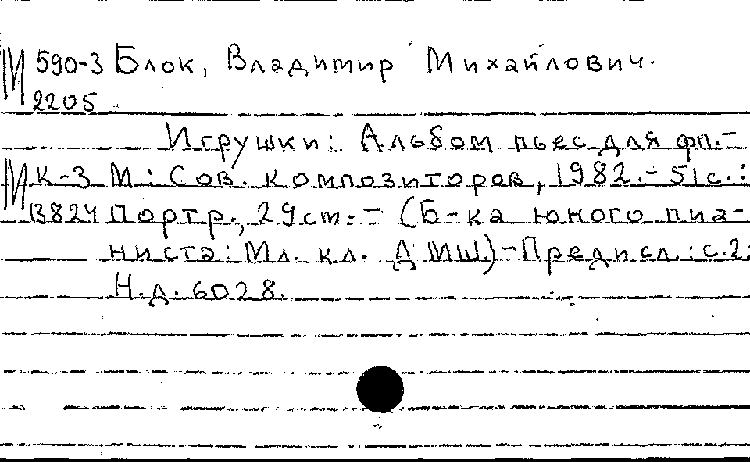 М 590-3 Блок, Владимир Михайлович.
2205
Игрушки: Альбом пьес для фп.-
М К-3 М: Сов. композиторов, 1982.- 51с.:
В824 портр., 29см.- (Б-ка юного пиа-
ниста: Мл. кл. ДМШ)-Предисл.: с.2:
Н.д. 6028.